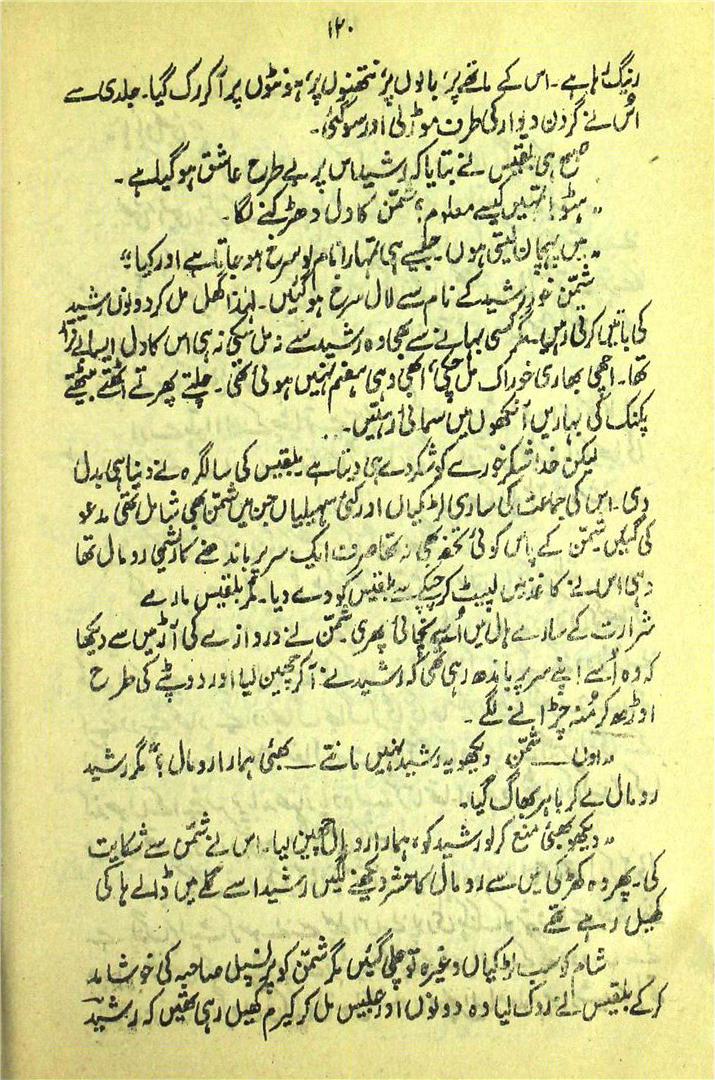 ۱۲۰
رینگ رہا ہے۔ اس کے ماتھے پر، بالوں پر، نتھنوں پر، ہونٹوں پر آکر رک گیا۔ جلدی سے
اُس نے گردن دیوار کی طرف موڑ لی اور سو گئی۔
صبح ہی بلقیس نے بتایا کہ رشید اس پر بے طرح عاشق ہو گیا ہے۔
"ہٹو! تمہیں کیسے معلوم؟" شمّن کا دل دھڑکنے لگا۔
"میں پہچان لیتی ہوں۔ جیسے ہی تمہارا نام لو سرخ ہو جاتا ہے اور کیا؟"
شمّن خود رشید کے نام سے لال سرخ ہو گئیں۔ لہٰذا گھل مل کر دونوں رشید
کی باتیں کرتی رہیں۔ مگر کسی بہانے سے بھی وہ رشید سے نہ مل سکی نہ ہی اس کا دل ایسا بے قرار
تھا۔ اچھی بھاری خوراک مل چکی، ابھی وہی ہضم نہیں ہوئی تھی۔ چلتے پھرتے اٹھتے بیٹھتے
پکنک کی بہاریں آنکھوں میں سمائی رہتیں۔
لیکن خدا شکر خورے کو شکر دے ہی دیتا ہے بلقیس کی سالگرہ نے دنیا ہی بدل
دی۔ اس کی جماعت کی ساری لڑکیاں اور کئی سہیلیاں جن میں شمّن بھی شامل تھی مدعو
کی گئیں شمّن کے پاس کوئی تحفہ بھی نہ تھا صرف ایک سر پر باندھنے کا ریشمی رومال تھا
وہی اس نے کاغذ میں لپیٹ کر چپکے سے بلقیس کو دے دیا۔ مگر بلقیس مارے
شرارت کے سارے ہال میں اُسے نچاتی پھری شمّن نے دروازے کی آڑ میں سے دیکھا
کہ وہ اُسے اپنے سر پر باندھ رہی تھی کہ رشید نے آکر چھین لیا اور دوپٹے کی طرح
اوڑھ کر مُنہ چڑانے لگے۔
"اوں ـــ شمّن دیکھو یہ رشید نہیں مانتے ـــ بھئی ہمارا رومال؟" مگر رشید
رومال لے کر باہر بھاگ گیا۔
"دیکھو بھئی منع کر لو رشید کو، ہمارا رومال چھین لیا۔ اس نے شمّن سے شکایت
کی۔ پھر وہ کھڑکی میں سے رومال کا حشر دیکھنے لگیں رشید اسے گلے میں ڈالے ہاکی
کھیل رہے تھے۔
شام کو سب لڑکیاں وغیرہ تو چلی گئیں مگر شمّن کو پرنسپل صاحبہ کی خوشامد
کر کے بلقیس نے روک لیا وہ دونوں اور جلیس مل کر کیرم کھیل رہی تھیں کہ رشید